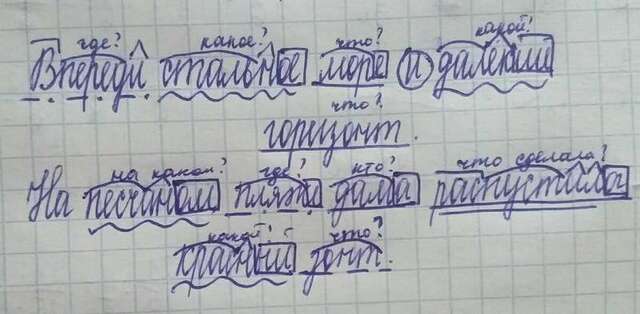 где? какое? что? какой?
Впереди стальное море и далёкий
что?
горизонт.
на каком? где? кто? что сделала?
На песчаном пляже дама распустила
какой? что?
красный зонт.